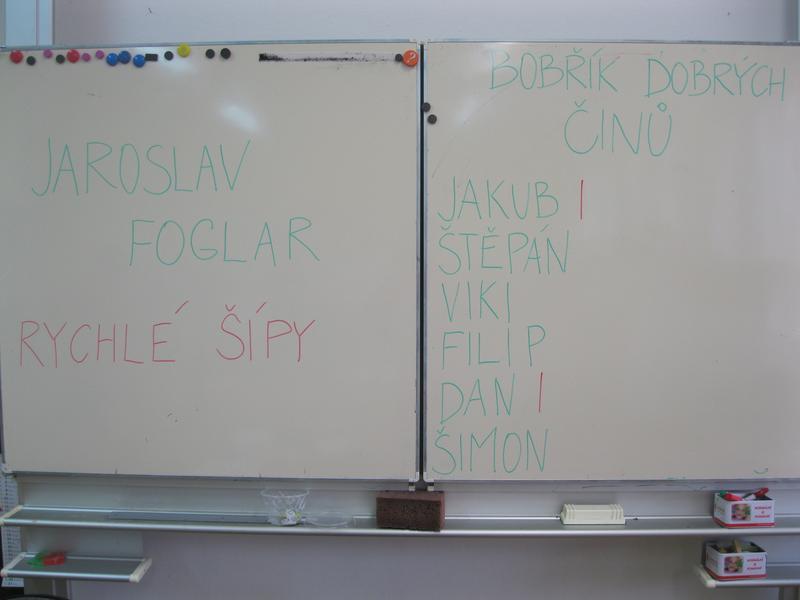 JAROSLAV
FOGLAR
RYCHLÉ ŠÍPY
BOBŘÍK DOBRÝCH
ČINŮ
JAKUB I
ŠTĚPÁN
VIKI
FILIP
DAN I
ŠIMON